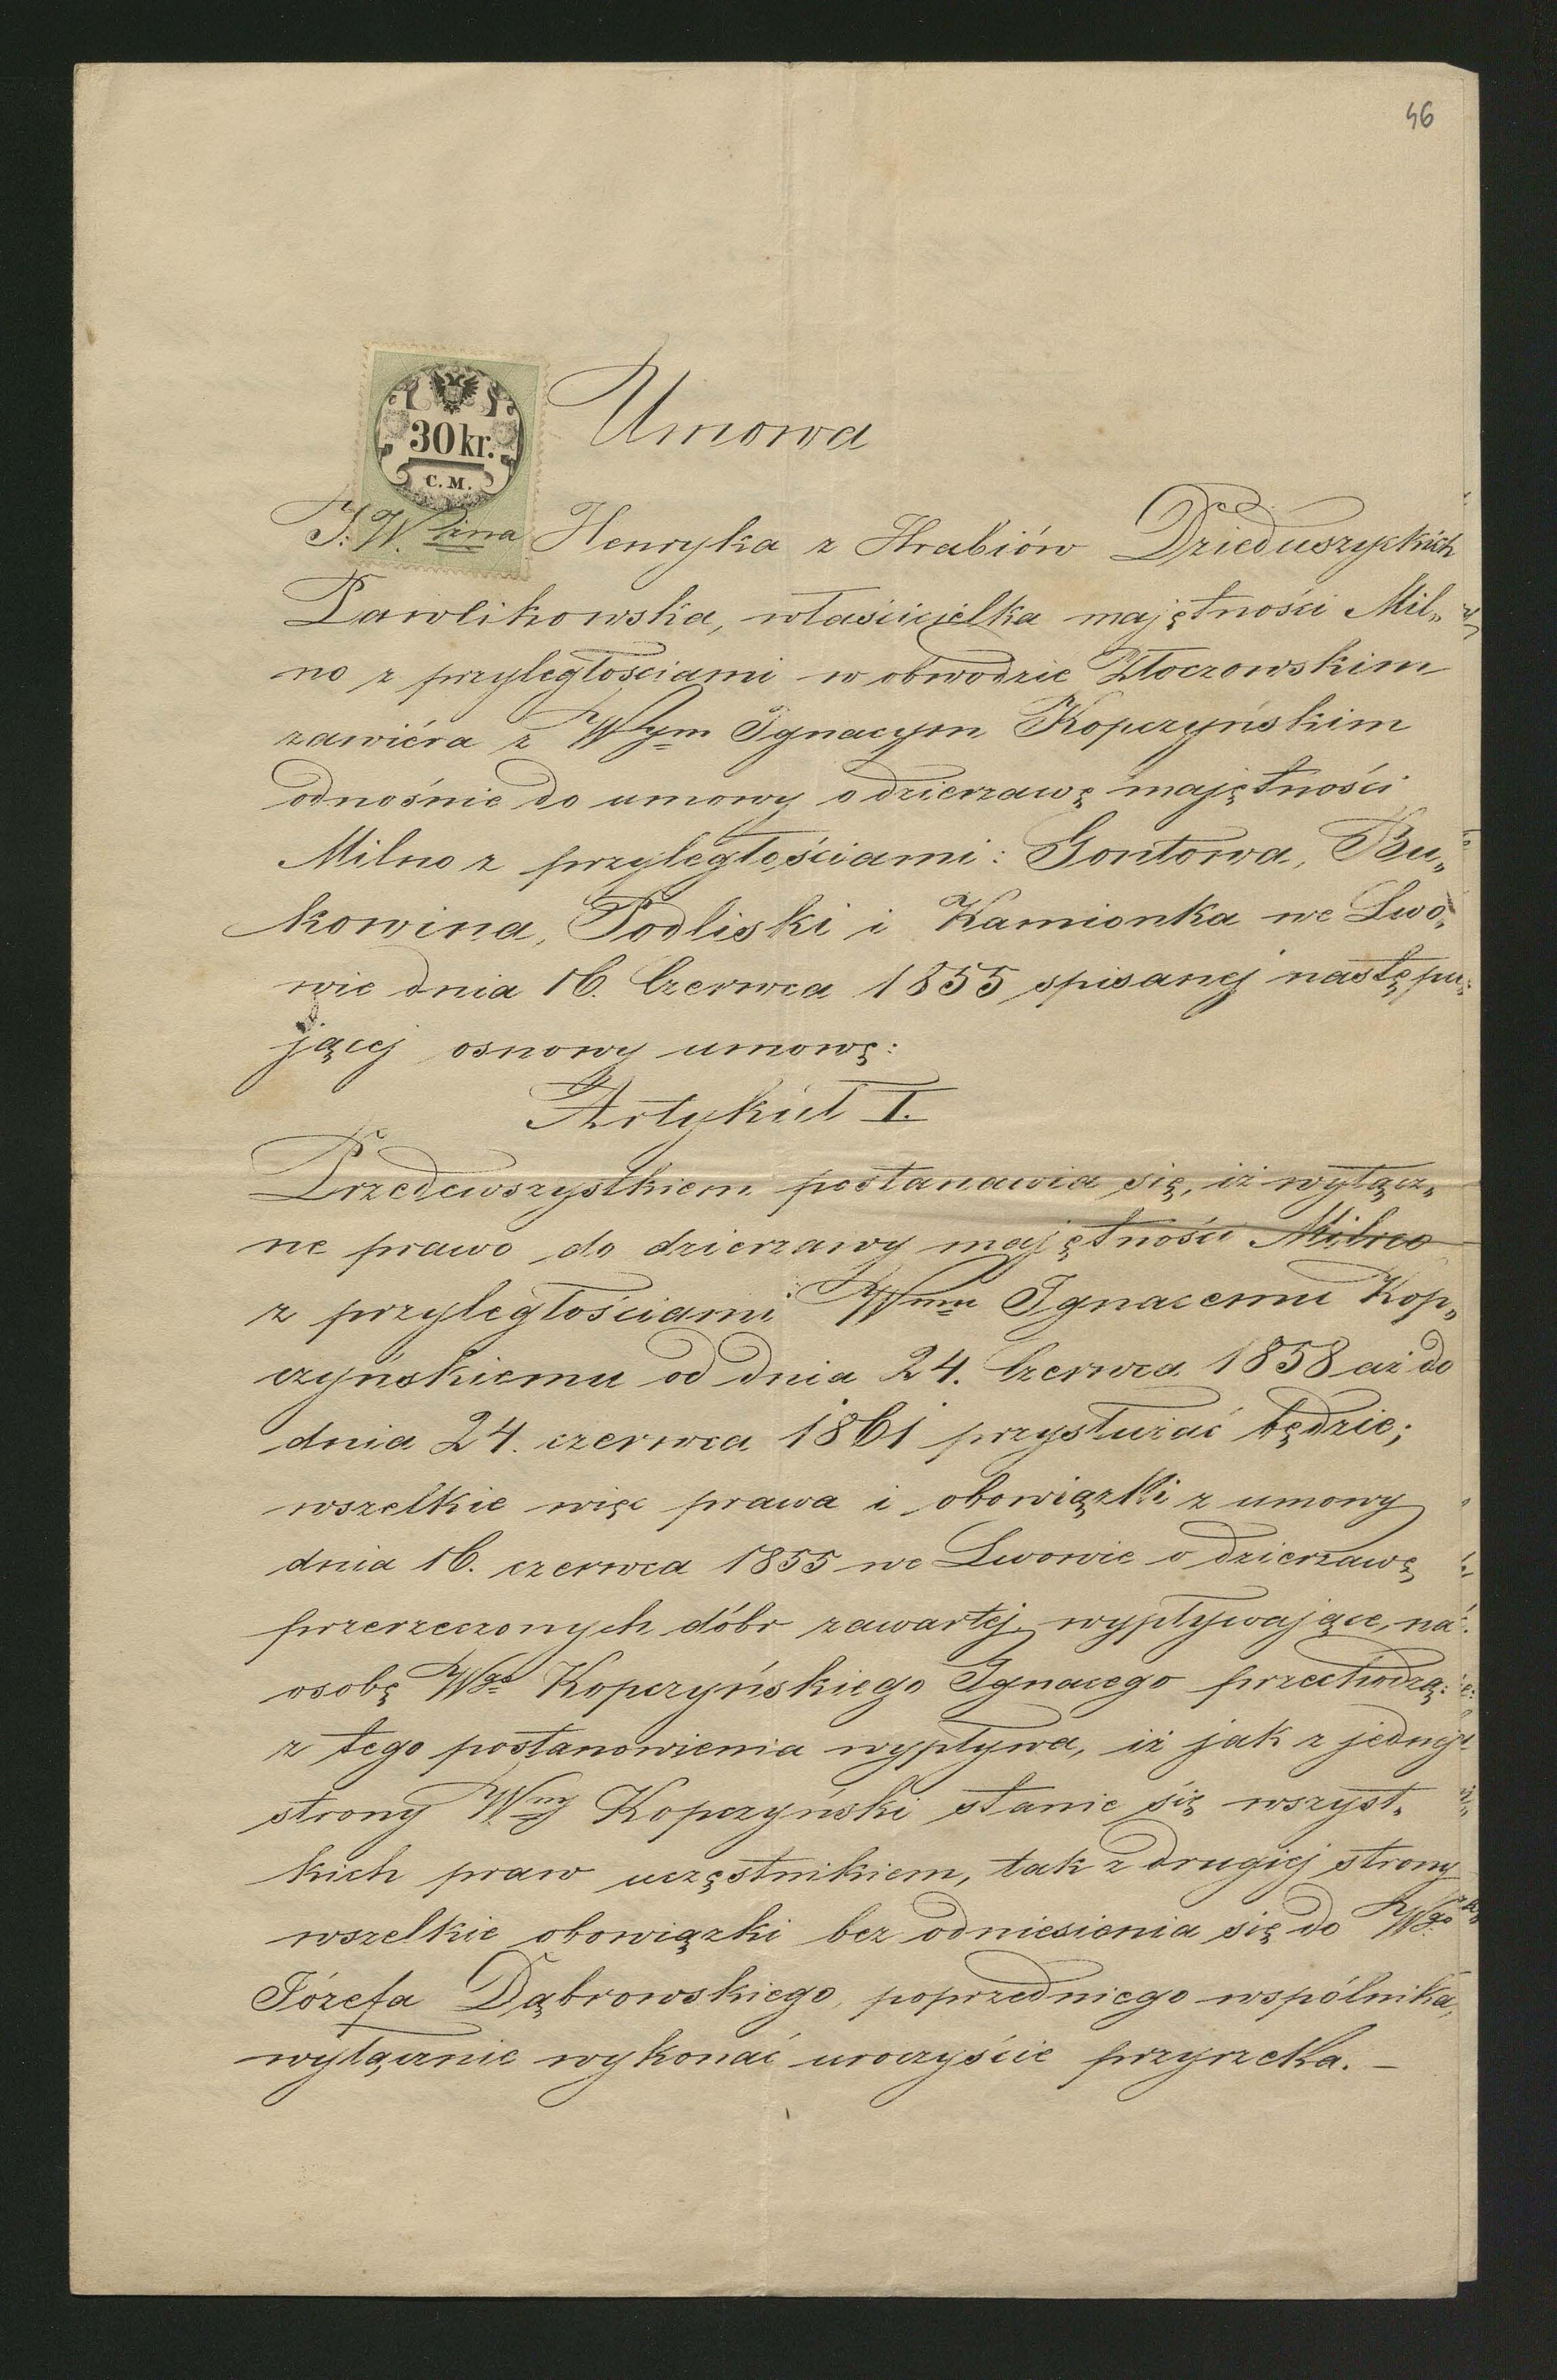 46
30 kr.
C. M.
Umowa
J. W. Pani Henryka z Hrabiów Dzieduszyckich
Pawlikowska, właścicielka majętności Mil„
no z przyległościami w obwodzie Złoczowskim
zawiéra z Wym Ignacym Kopczyńskim
odnośnie do umowy o dzierzawę majętności
Milno z przyległościami: Gontowa, Bu„
kowina, Podliski i Kamionka we Lwo„
wie dnia 16. Czerwca 1855 spisanej następu„
jącej osnowy umowę:
Artykuł I.
Przedewszystkiem postanawia się, iż wyłącz„
ne prawo do dzierzawy majętności Milno
z przyległościami Wmu Ignacemu Kop„
czyńskiemu od dnia 24. Czerwca 1858 aż do
dnia 24. czerwca 1861 przysłużać będzie;
wszelkie więc prawa i obowiązki z umowy
dnia 16. czerwca 1855 we Lwowie o dzierzawę
przerzeczonych dóbr zawartej wypływające, na
osobę Wgo Kopczyńskiego Ignacego przechodzą:
z tego postanowienia wypływa, iż jak z jednej
strony Wny Kopczyński stanie się wszyst„
kich praw uczęstnikiem, tak z drugiej strony
wszelkie obowiązki bez odniesienia się do Wgo
Józefa Dąbrowskiego, poprzedniego wspólnika,
wyłącznie wykonać uroczyście przyrzeka. –